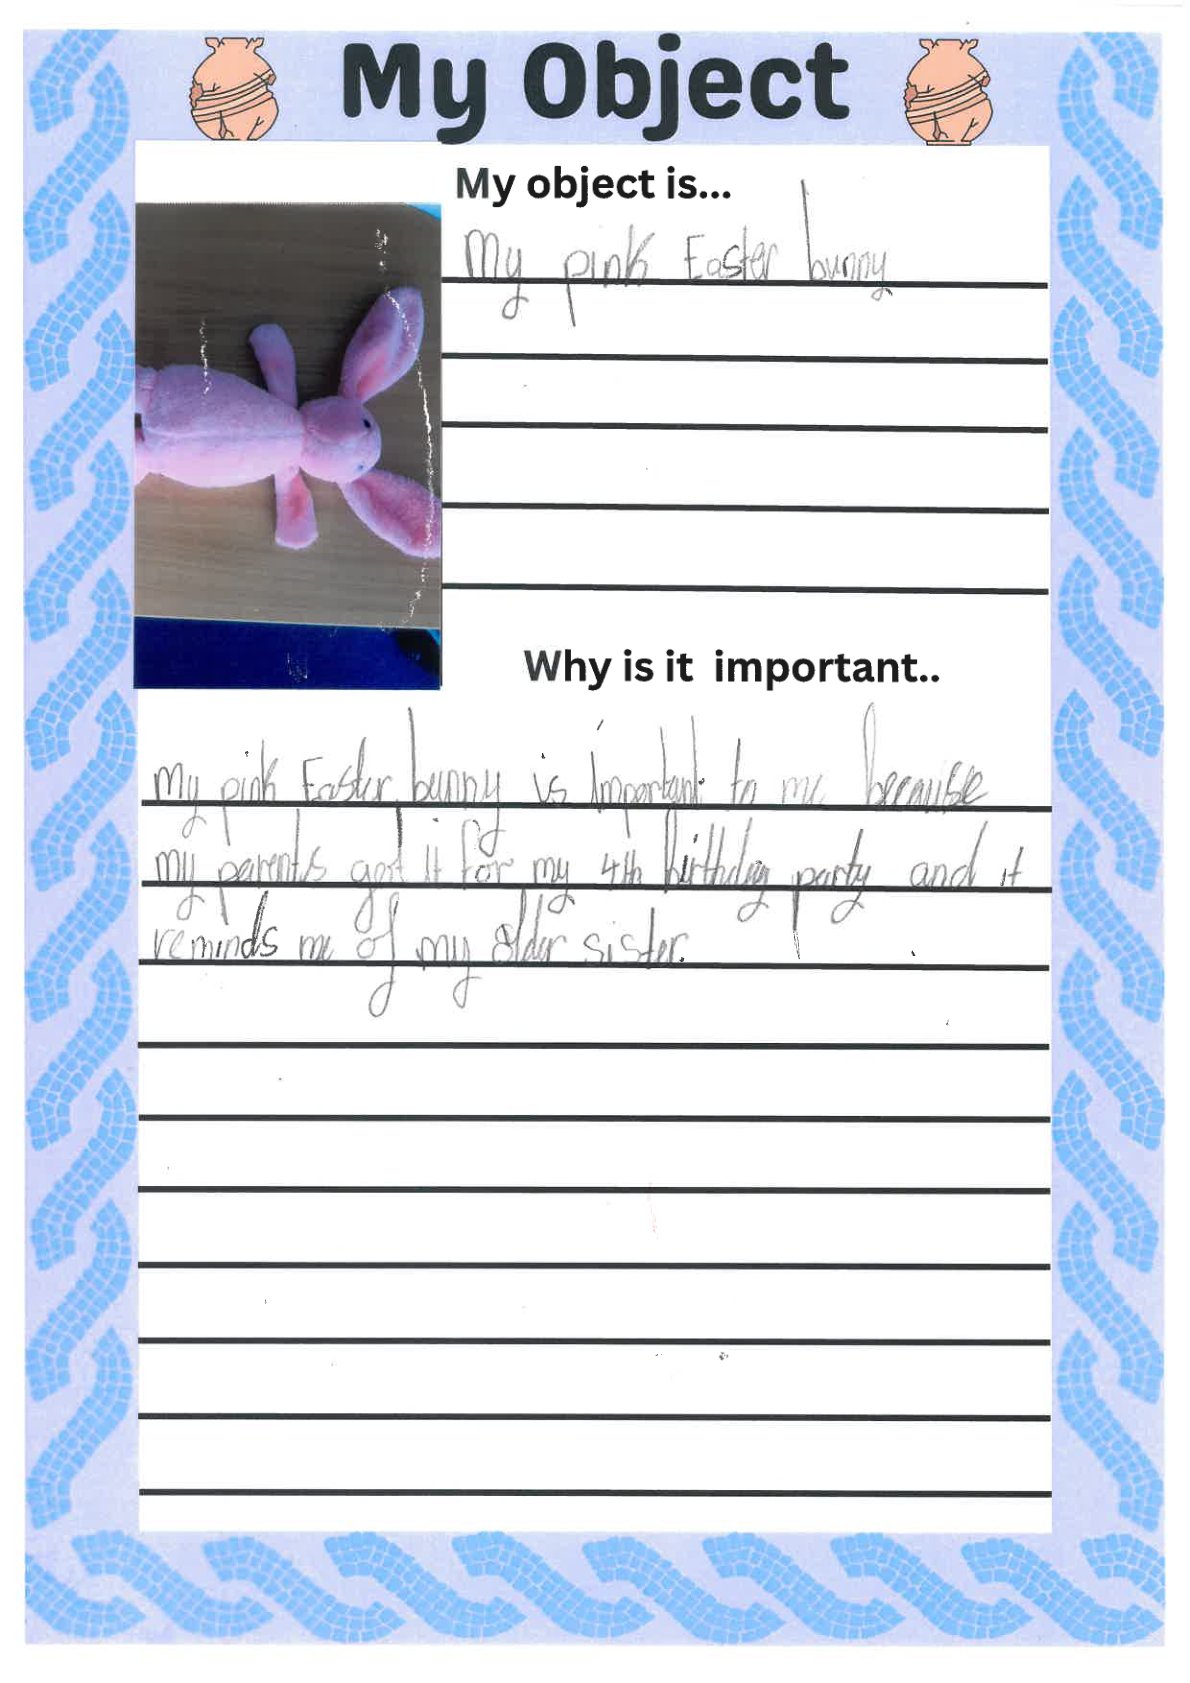 My Object
My object is...
My pink Easter bunny
Why is it important..
My pink Easter bunny is important to me because
my parents got it for my 4th birthday party and it
reminds me of my older sister.